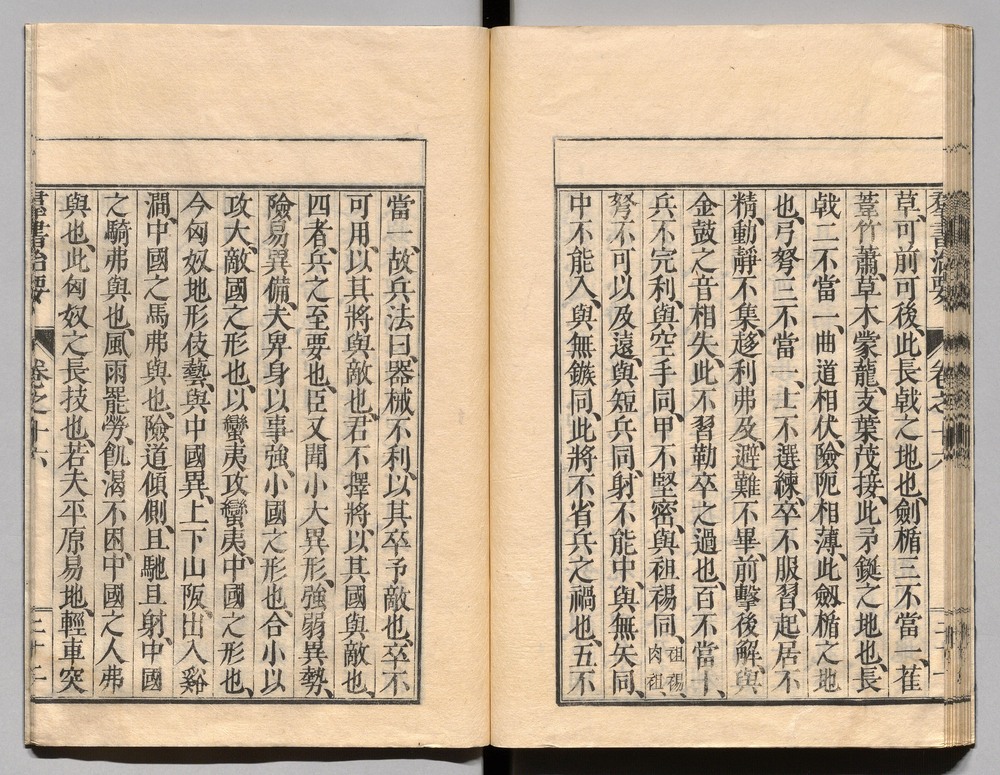 羣書治要 卷之十六
草、可前可後、此長戟之地也、劍楯三不當一、萑
葦竹蕭、草木蒙蘢、支葉茂接、此矛鋋之地也、長
戟二不當一、曲道相伏、險阨相薄、此劔楯之地
也、弓弩三不當一、士不選練、卒不服習、起居不
精、動靜不集、趍利弗及、避難不畢、前擊後解、與
金鼓之音相失、此不習勒卒之過也、百不當十、
兵不完利、與空手同、甲不堅密、與袒裼同、袒裼肉袒
弩不可以及遠、與短兵同、射不能中、與無矢同、
中不能入、與無鏃同、此將不省兵之禍也、五不
當一、故兵法曰、器械不利、以其卒予敵也、卒不
可用、以其將與敵也、君不擇將、以其國與敵也、
四者、兵之至要也、臣又聞小大異形、強弱異勢、
險易異備、夫卑身以事強、小國之形也、合小以
攻大、敵國之形也、以蠻夷攻蠻夷、中國之形也、
今匈奴地形伎藝、與中國異、上下山阪、出入谿
澗、中國之馬弗與也、險道傾側、且馳且射、中國
之騎弗與也、風雨罷勞、飢渴不困、中國之人弗
與也、此匈奴之長技也、若夫平原易地、輕車突
羣書治要 卷之十六 三十二